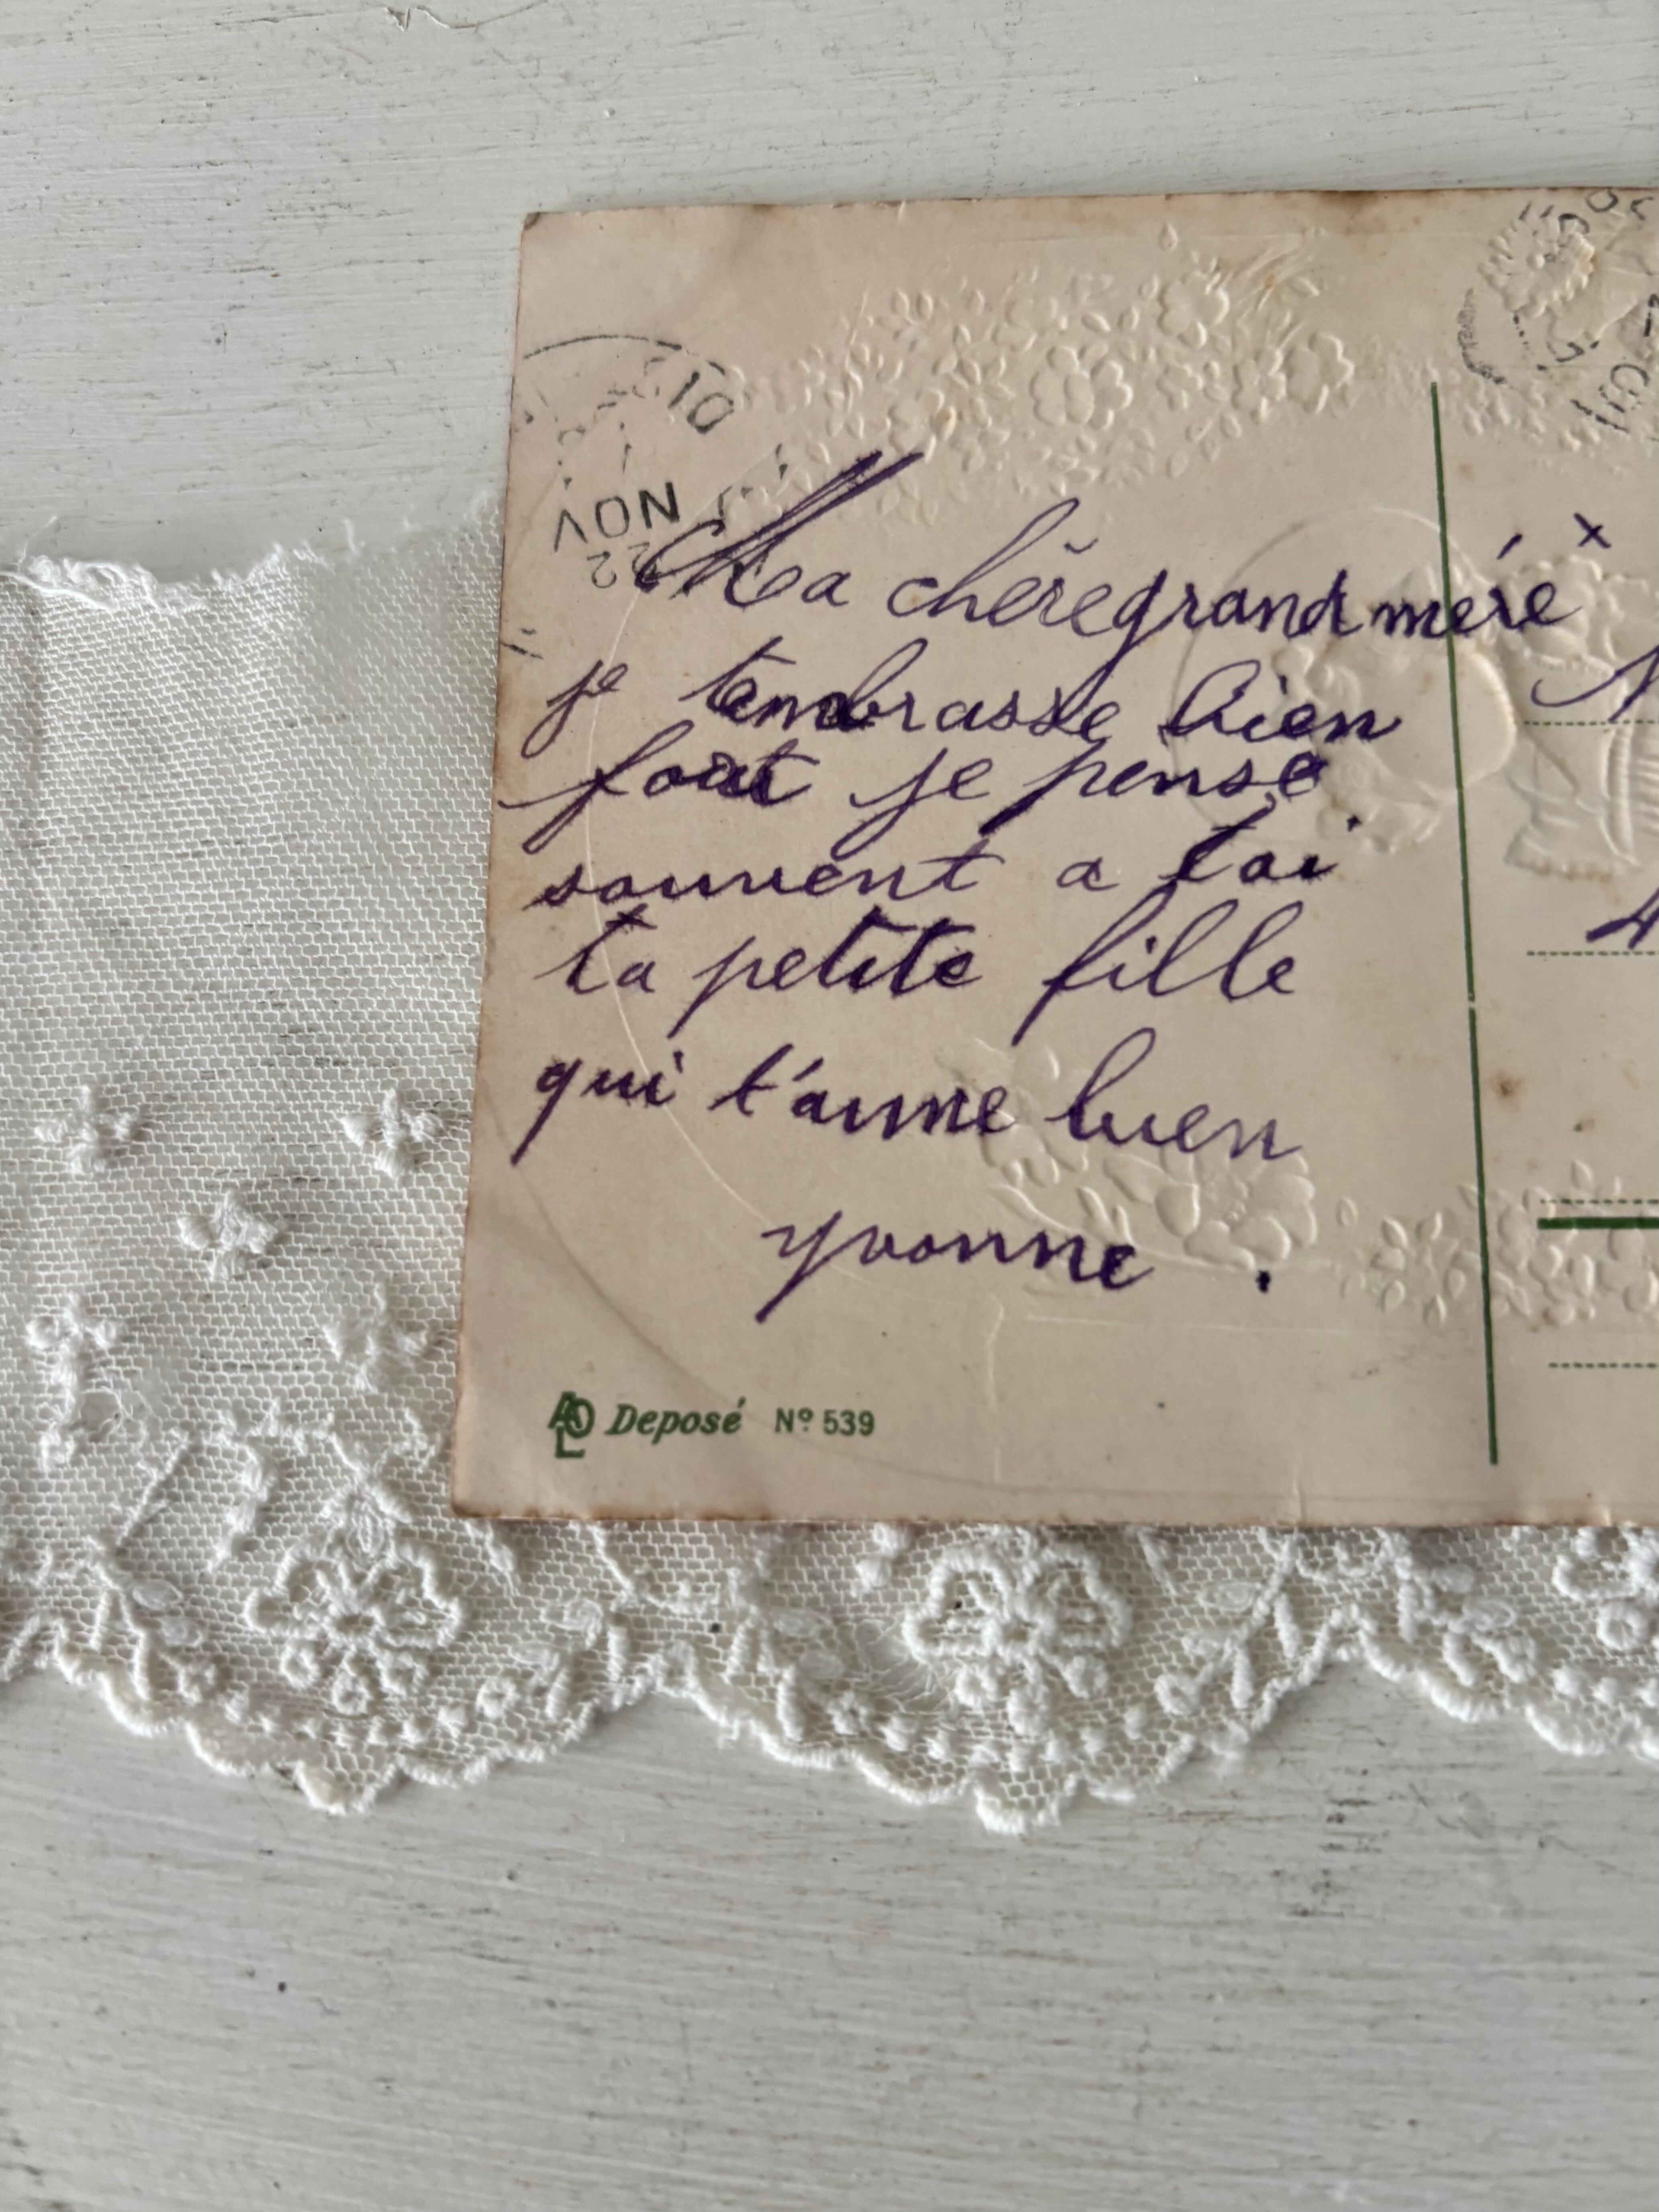 10
NOV
22
Ma chère grand mére x
je tembrasse bien
fort je pense
souvent a toi
ta petite fille
qui t'aime bien
yvonne .
Deposé Nº 539